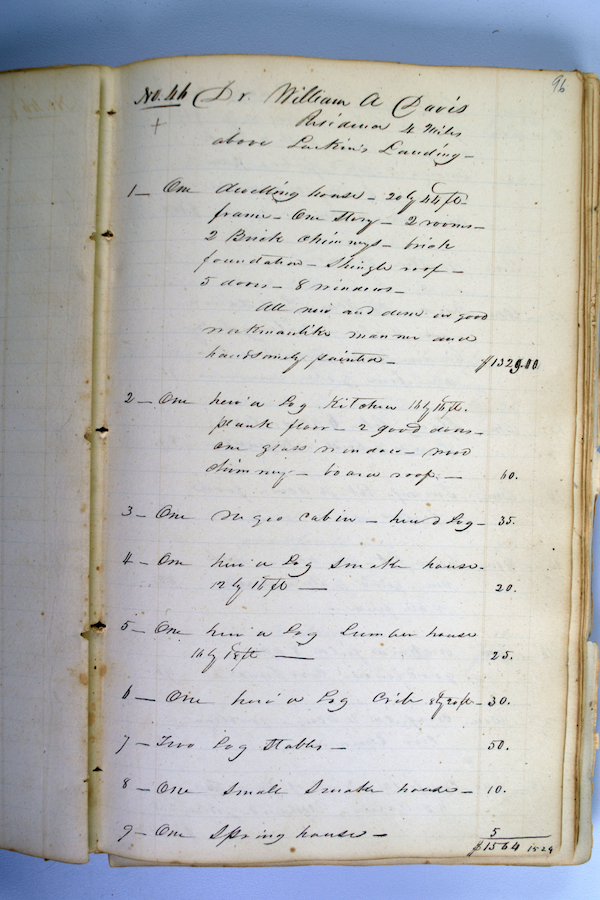 96
No. 46 Dr. William A Davis
+ Residence 4 Miles
above Larkin's Landing -
1 - One dwelling house - 20 by 44 ft -
frame - One Story - 2 rooms -
2 Brick chimneys - brick
foundation - Shingle roof -
5 doors - 8 windows -
All new and done in good
workmanlike manner and
handsomely painted - $1329.00
2 - One hew'd Log Kitchen 16 by 16 ft.
plank floor - 2 good doors -
one glass window - wood
chimney - board roof - 60.
3 - One Negro cabin - hew'd Log - 35.
4 - One hew'd Log Smoke house -
12 by 16 ft - 20.
5 - One hew'd Log Lumber house
16 by 18 ft - 25.
6 - One hew'd Log Crib 8 by 20 ft - 30.
7 - Two Log Stables - 50.
8 - One Small Smoke house - 10.
9 - One Spring house - 5
$1564 1529